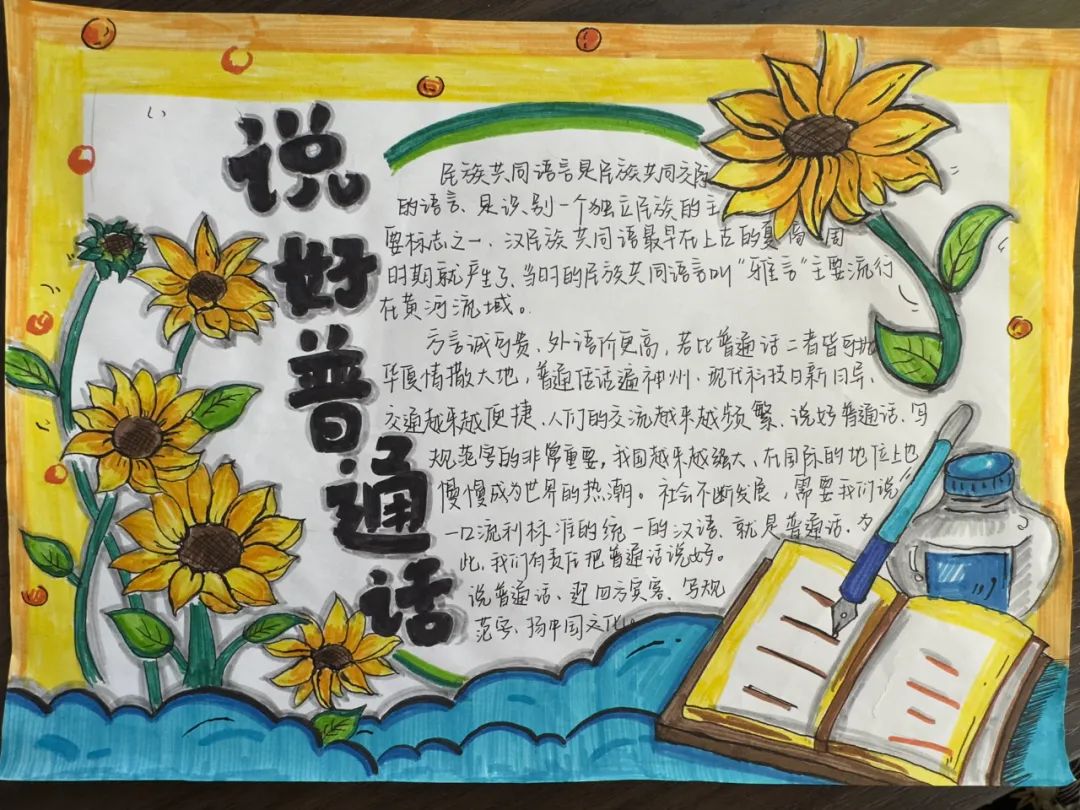 说好普通话
民族共同语言是民族共同交际
的语言、是识别一个独立民族的主
要标志之一、汉民族共同语最早在上古的夏商周
时期就产生了、当时的民族共同语言叫“雅言”主要流行
在黄河流域。
方言诚可贵、外语价更高，若比普通话二者皆可抛
华厦情撒大地，普通话话遍神州、现代科技日新月异、
交通越来越便捷、人们的交流越来越频繁、说好普通话、写
规范字的非常重要，我国越来越强大、在国际的地位上也
慢慢成为世界的热潮。社会不断发展，需要我们说
一口流利标准的统一的汉语、就是普通话、为
此、我们有责任把普通话说好。
说普通话、迎四方宾客、写规
范字、扬中国文化。